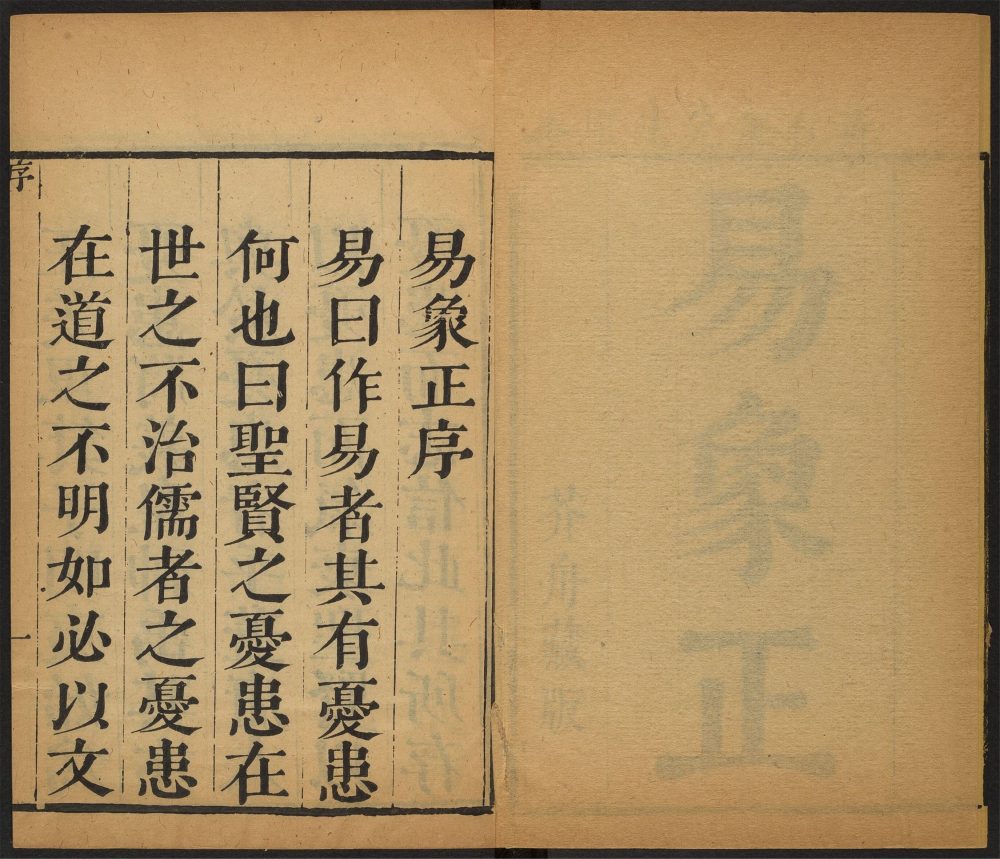 易象正
易象正序
易曰作易者其有憂患
何也曰聖賢之憂患在
世之不治儒者之憂患
在道之不明如必以文
序
一